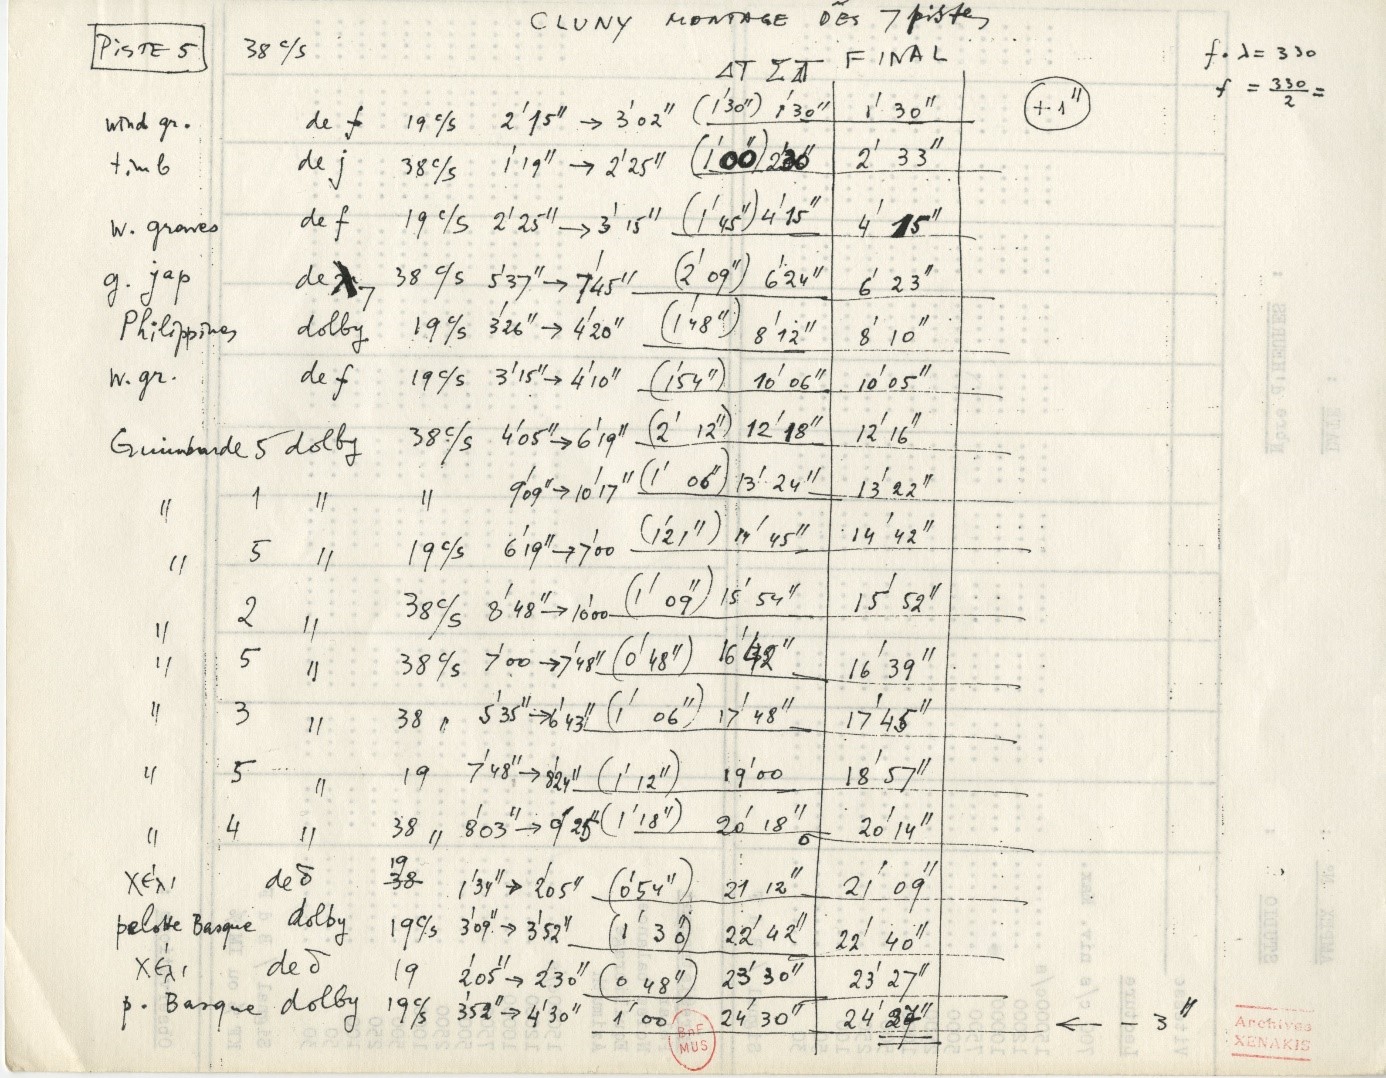 CLUNY MONTAGE DES 7 pistes
PISTE 5 38 c/s
ΔT ΣΔT FINAL
f·λ = 330
f = 330/2 =
+1"
wind gr. de f 19 c/s 2'15" → 3'02" (1'30") 1'30" 1'30"
timb de j 38 c/s 1'19" → 2'25" (1'00") 2'30" 2'33"
w. graves de f 19 c/s 2'25" → 3'15" (1'45") 4'15" 4'15"
g. jap de λ7 38 c/s 5'37" → 7'45" (2'09") 6'24" 6'23"
Philippines dolby 19 c/s 3'26" → 4'20" (1'48") 8'12" 8'10"
w. gr. de f 19 c/s 3'15" → 4'10" (1'54") 10'06" 10'05"
Guimbarde 5 dolby 38 c/s 4'05" → 6'19" (2'12") 12'18" 12'16"
" 1 " " 9'09" → 10'17" (1'06") 13'24" 13'22"
" 5 " 19 c/s 6'19" → 7'00 (1'21") 14'45" 14'42"
" 2 " 38 c/s 8'48" → 10'00 (1'09") 15'54" 15'52"
" 5 " 38 c/s 7'00 → 7'48" (0'48") 16'42" 16'39"
" 3 " 38 " 5'35" → 6'43" (1'06") 17'48" 17'45"
" 5 " 19 7'48" → 8'24" (1'12") 19'00 18'57"
" 4 " 38 " 8'03" → 9'25" (1'18") 20'18" 20'14"
χέλι de δ 19 38 1'34" → 2'05" (0'54") 21 12" 21'09"
pelotte Basque dolby 19 c/s 3'09" → 3'52" (1'30) 22'42" 22'40"
χέλι de δ 19 2'05" → 2'30" (0 48") 23'30" 23'27"
p. Basque dolby 19 c/s 3'52" → 4'30" 1'00 24'30" 24'27" ← -3"
BnF
MUS
Archives
XENAKIS